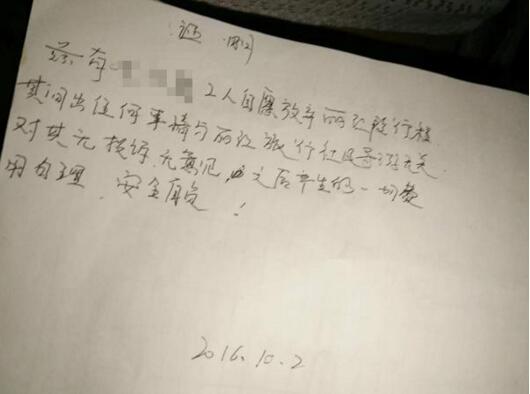 证明
兹有 2人自愿放弃丽江段行程
其间出任何事情与丽江旅行社及导游无关.
对其无投诉,无意见,之后产生的一切费
用自理,安全自负!
2016.10.2